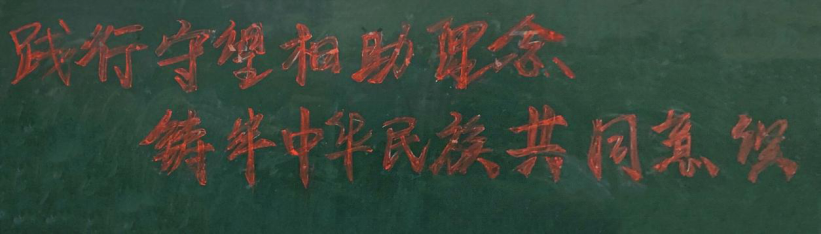 践行守望相助理念
铸牢中华民族共同意识